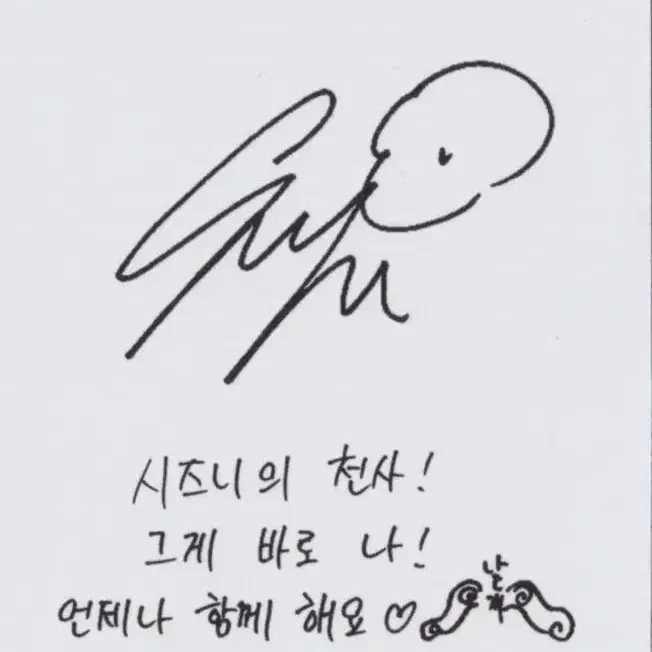 시즈니의 천사!
그게 바로 나!
언제나 함께 해요♡
날개